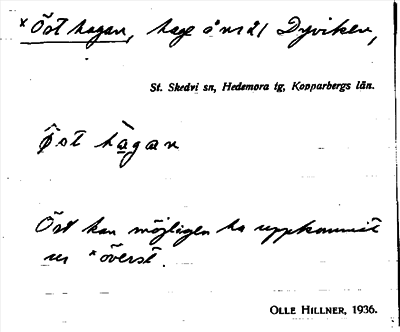 *Östhagan, hage å nr 21 Dyviken,
St. Skedvi sn, Hedemora tg, Kopparbergs län.
Øst hàgan
Öst kan möjligen ha uppkommit
ur *överst.
OLLE HILLNER, 1936.